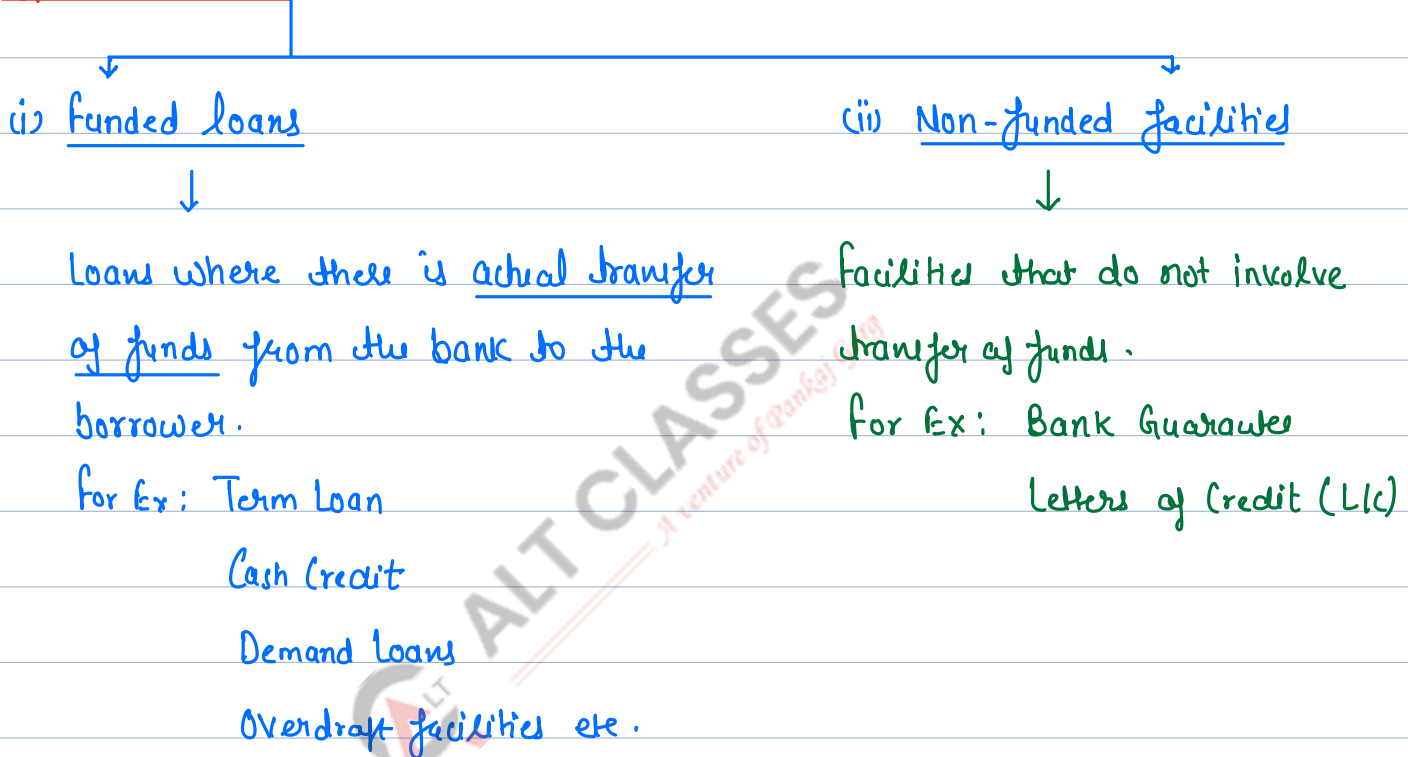 (i) Funded loans
Loans where there is actual transfer
of funds from the bank to the
borrower.
For Ex: Term Loan
Cash Credit
Demand Loans
Overdraft facilities etc.
(ii) Non-funded facilities
Facilities that do not involve
transfer of funds.
For Ex: Bank Guarantee
Letters of Credit (L/C)
ALT CLASSES
A venture of Pankaj Garg
ALT